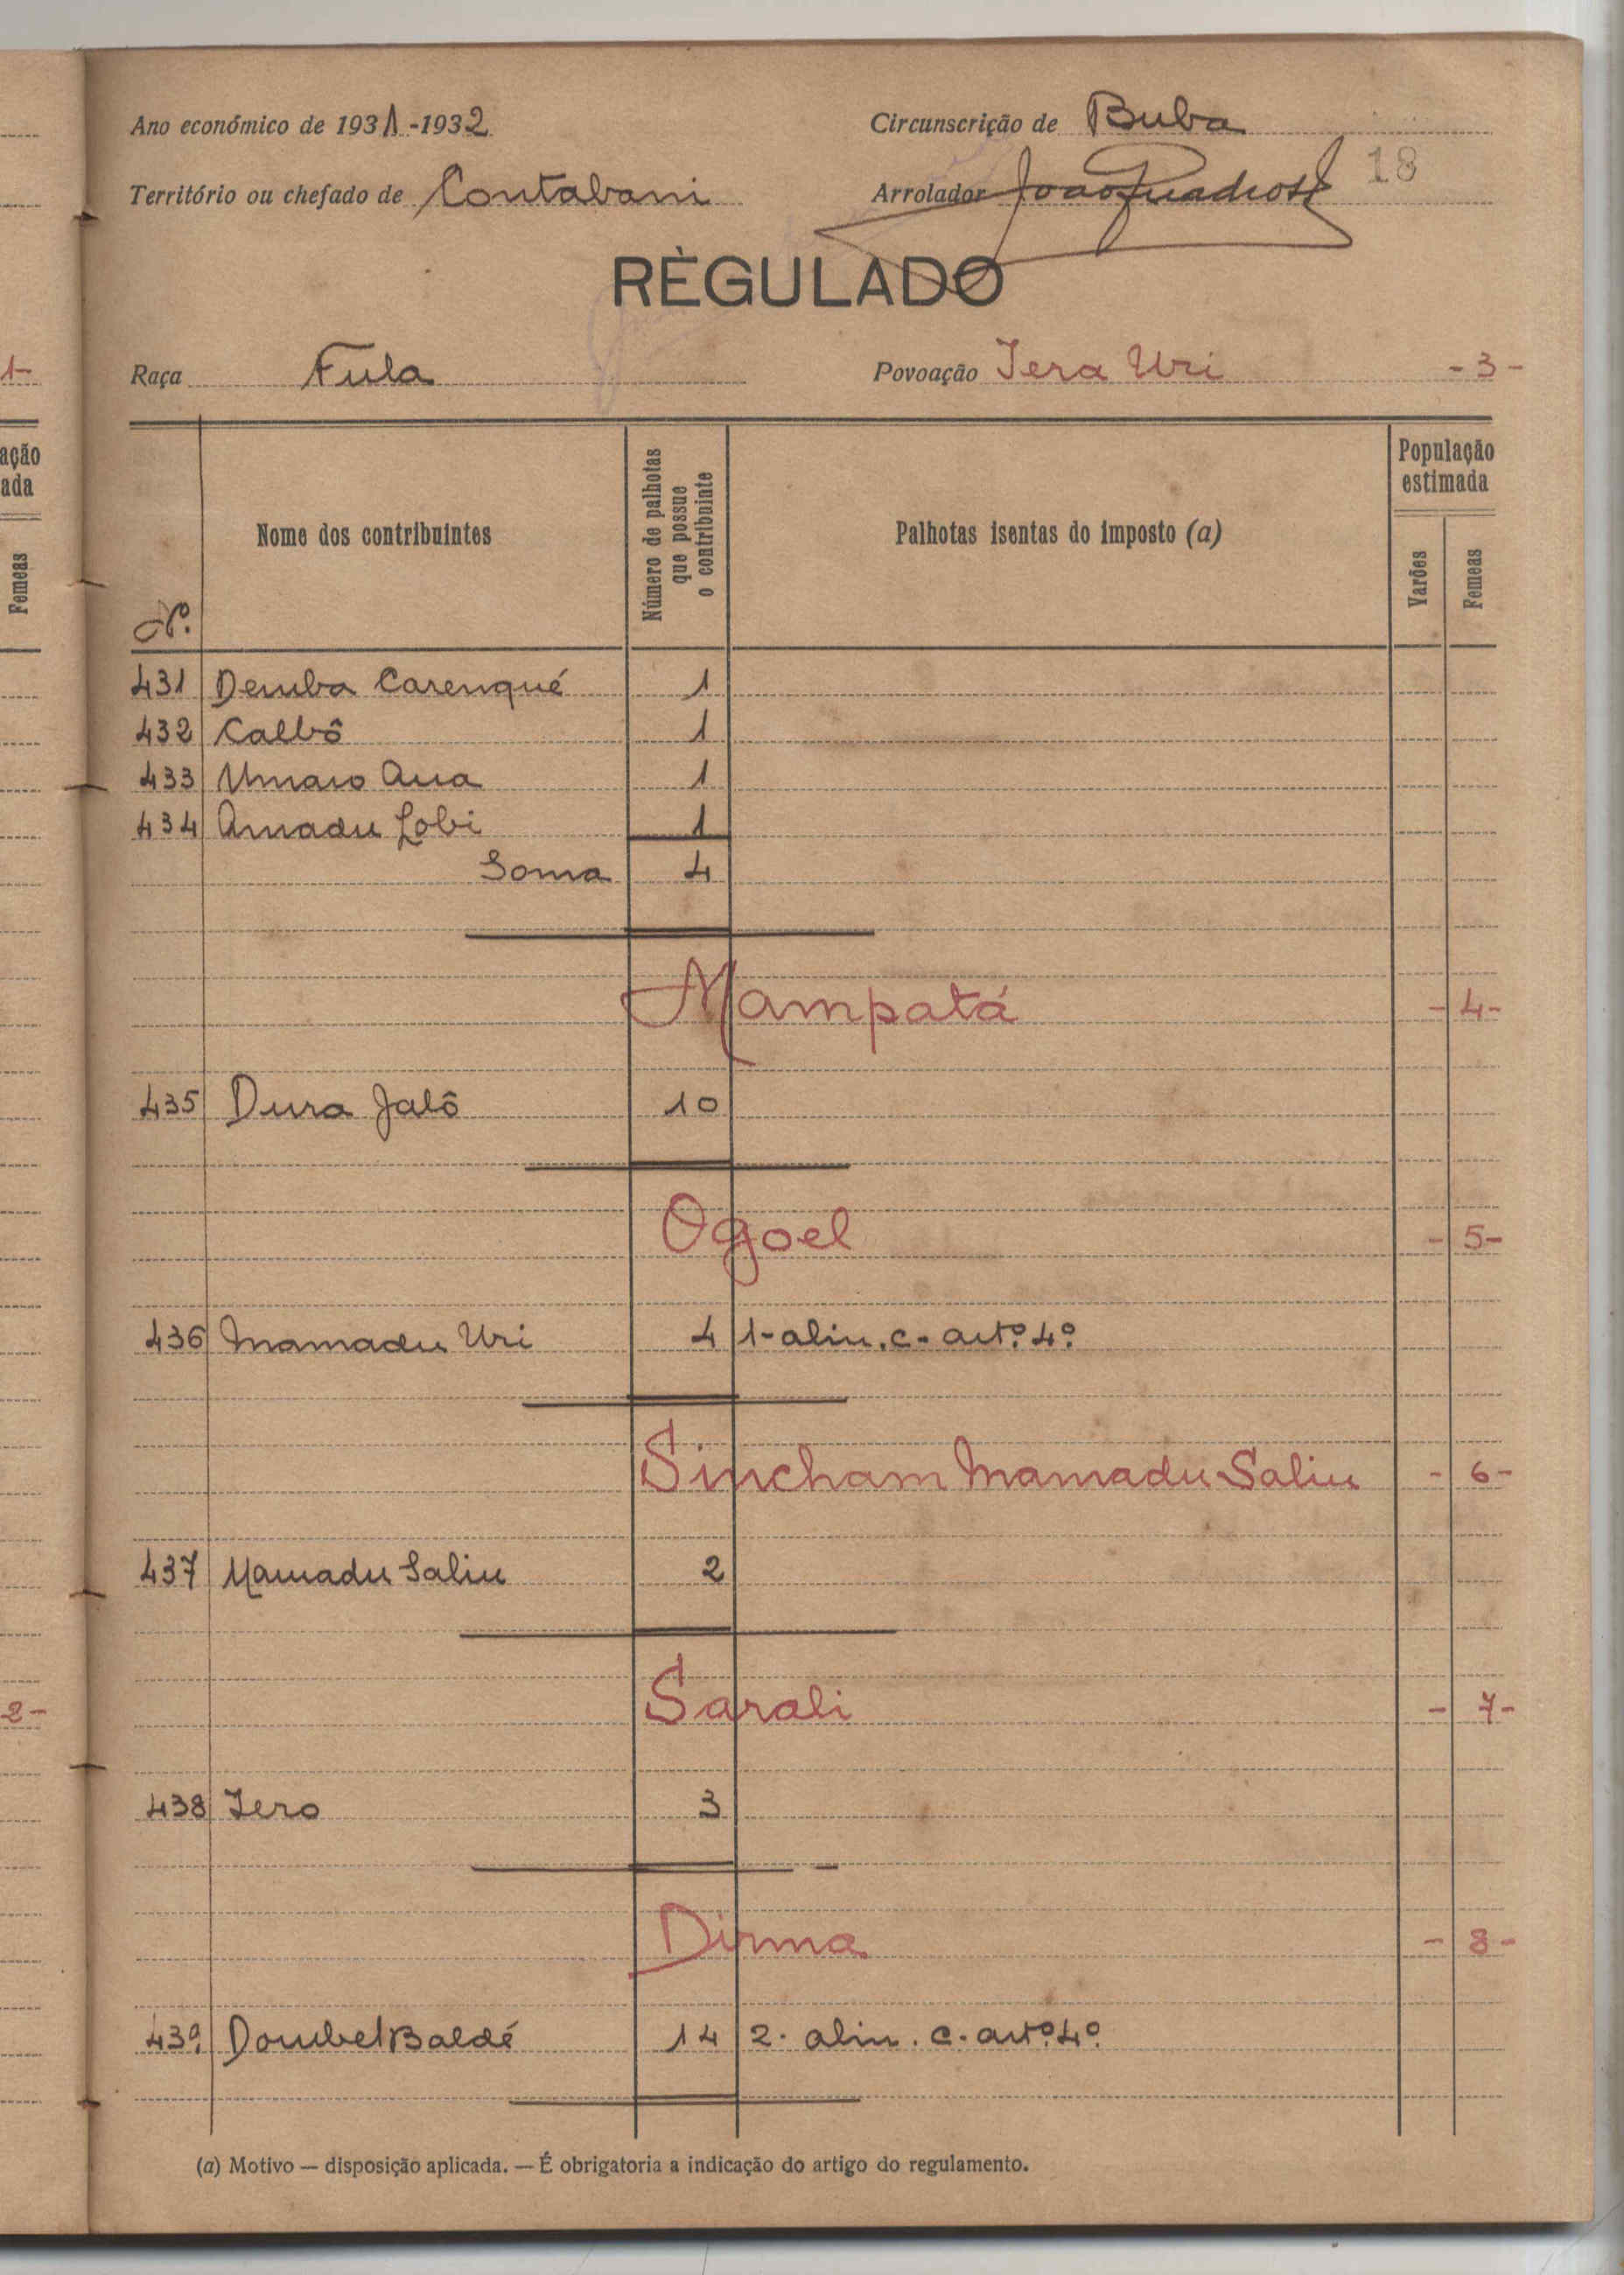 Ano económico de 1931-1932
Circunscrição de Buba
Território ou chefado de Contabani
Arrolador João Quadros
18
RÈGULADO
Raça Fula
Povoação Iera Uri -3-
1-
ação
ada
Femeas
N.º
Nome dos contribuintes
Número de palhotas que possue o contribuinte
Palhotas isentas do imposto (a)
População estimada
Varões
Femeas
431 Demba Carenqué 1
432 Calbô 1
433 Umaro Aua 1
434 Amadu Lobi 1
Soma 4
Mampatá -4-
435 Dura Jalô 10
Ogoel -5-
436 Mamadu Uri 4 1-alin.c-artº.4º
Sincham Mamadu Saliu -6-
437 Mamadu Saliu 2
Sarali -7-
2-
438 Iero 3
Dirma -8-
439 Dombel Baldé 14 2. alin. c. artº.4º
(a) Motivo — disposição aplicada. — É obrigatoria a indicação do artigo do regulamento.